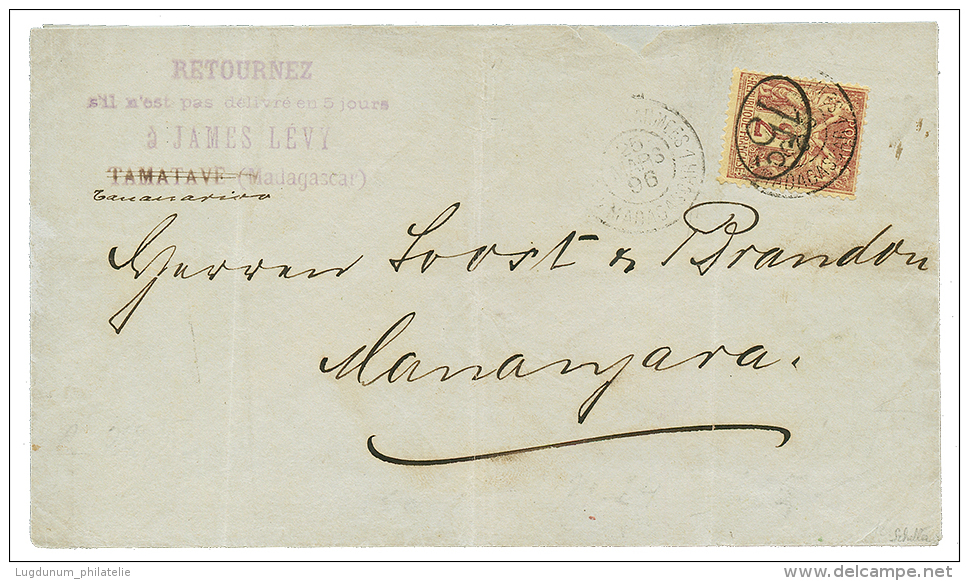 RETOURNEZ
s'il n'est pas délivré en 5 jours
à JAMES LÉVY
TAMATAVE (Madagascar)
Tananarivo
15
2
MADAGAS
MADAGA
96
Herren Soost & Brandon
Mananjara.
Schiller
Lugdunum_philatelie
www.delcampe.net